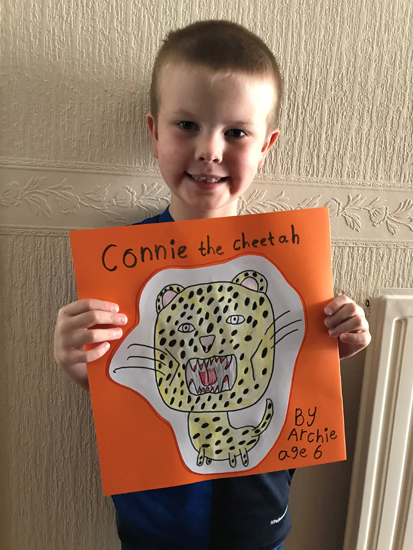 Connie the cheetah
By
Archie
age 6